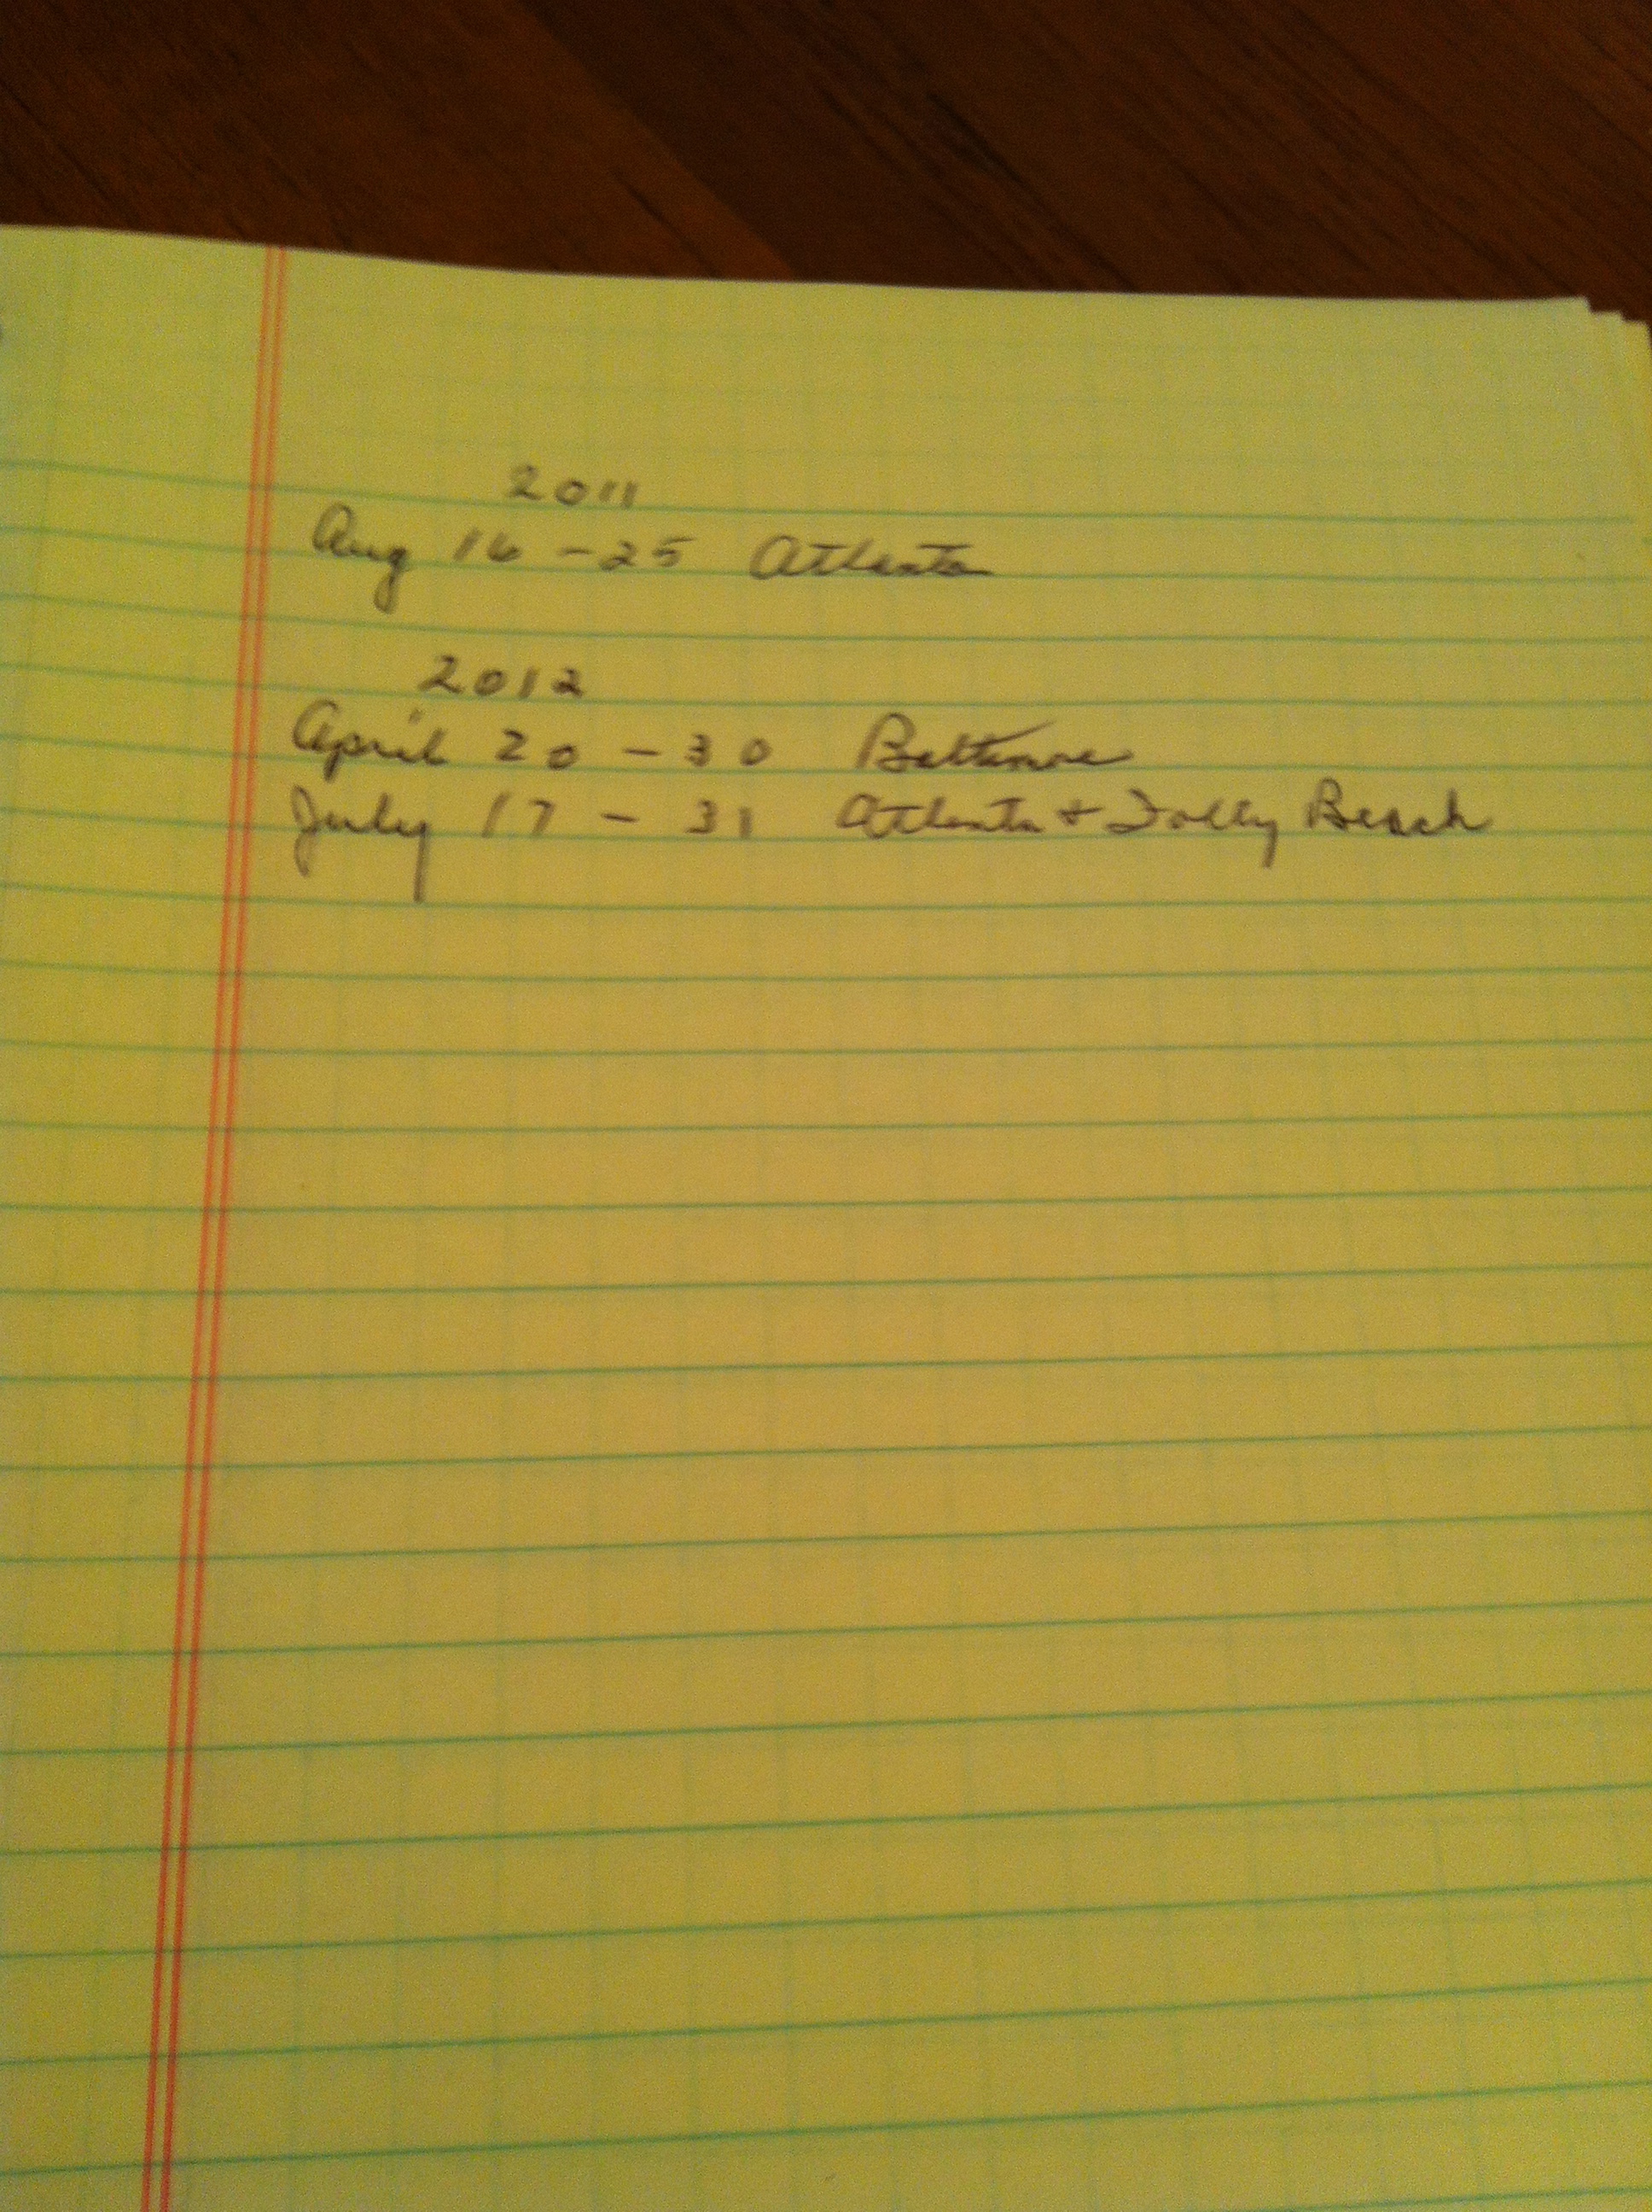 2011
Aug 16 - 25 Atlanta
2012
April 20 - 30 Baltimore
July 17 - 31 Atlanta + Folly Beach